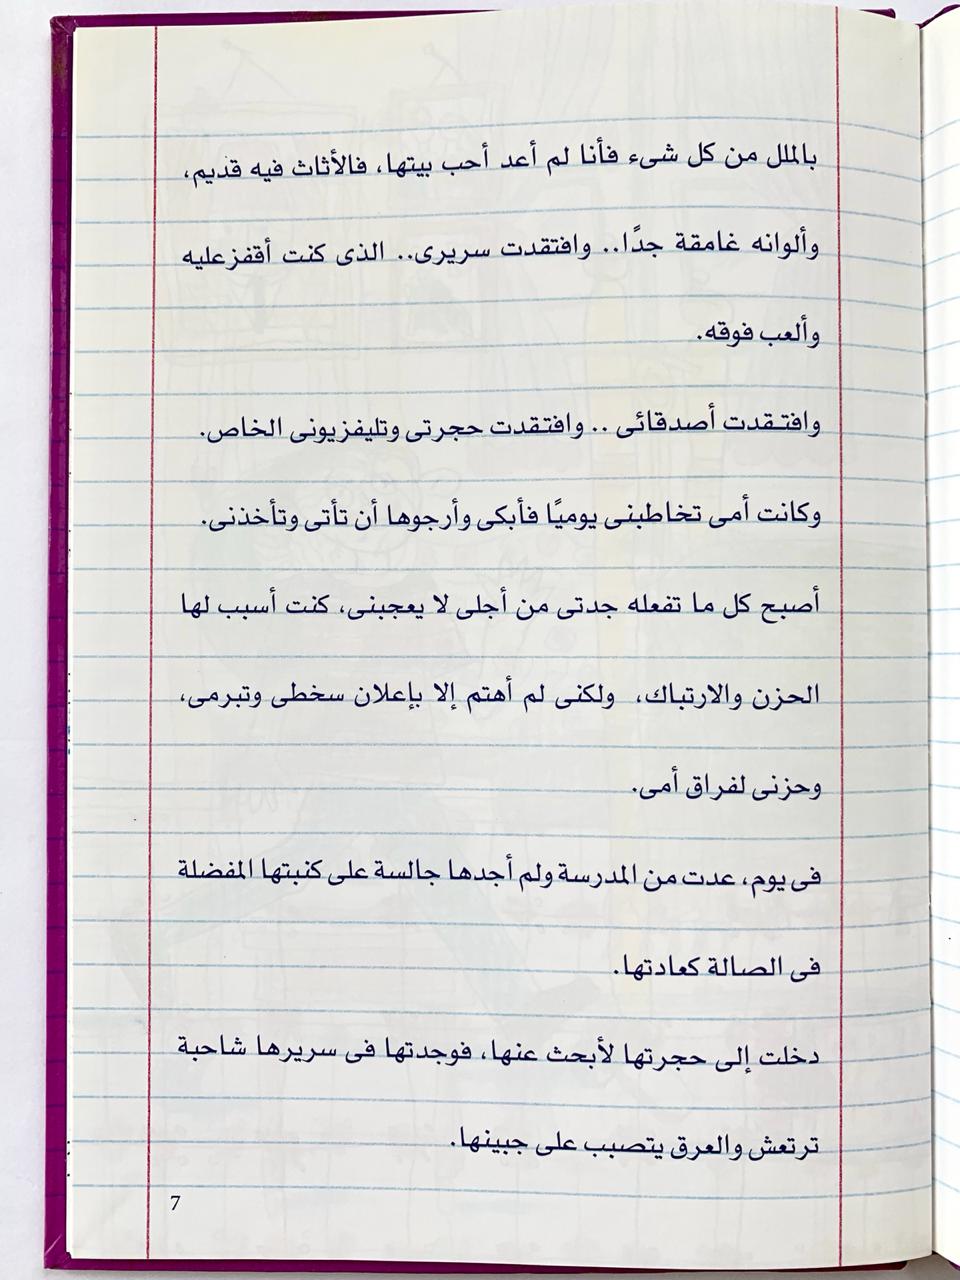 بالملل من كل شىء فأنا لم أعد أحب بيتها، فالأثاث فيه قديم،
وألوانه غامقة جدًا.. وافتقدت سريرى.. الذى كنت أقفز عليه
وألعب فوقه.
وافتقدت أصدقائى .. وافتقدت حجرتى وتليفزيونى الخاص.
وكانت أمى تخاطبنى يوميًا فأبكى وأرجوها أن تأتى وتأخذنى.
أصبح كل ما تفعله جدتى من أجلى لا يعجبنى، كنت أسبب لها
الحزن والارتباك، ولكنى لم أهتم إلا بإعلان سخطى وتبرمى،
وحزنى لفراق أمى.
فى يوم، عدت من المدرسة ولم أجدها جالسة على كنبتها المفضلة
فى الصالة كعادتها.
دخلت إلى حجرتها لأبحث عنها، فوجدتها فى سريرها شاحبة
ترتعش والعرق يتصبب على جبينها.
7